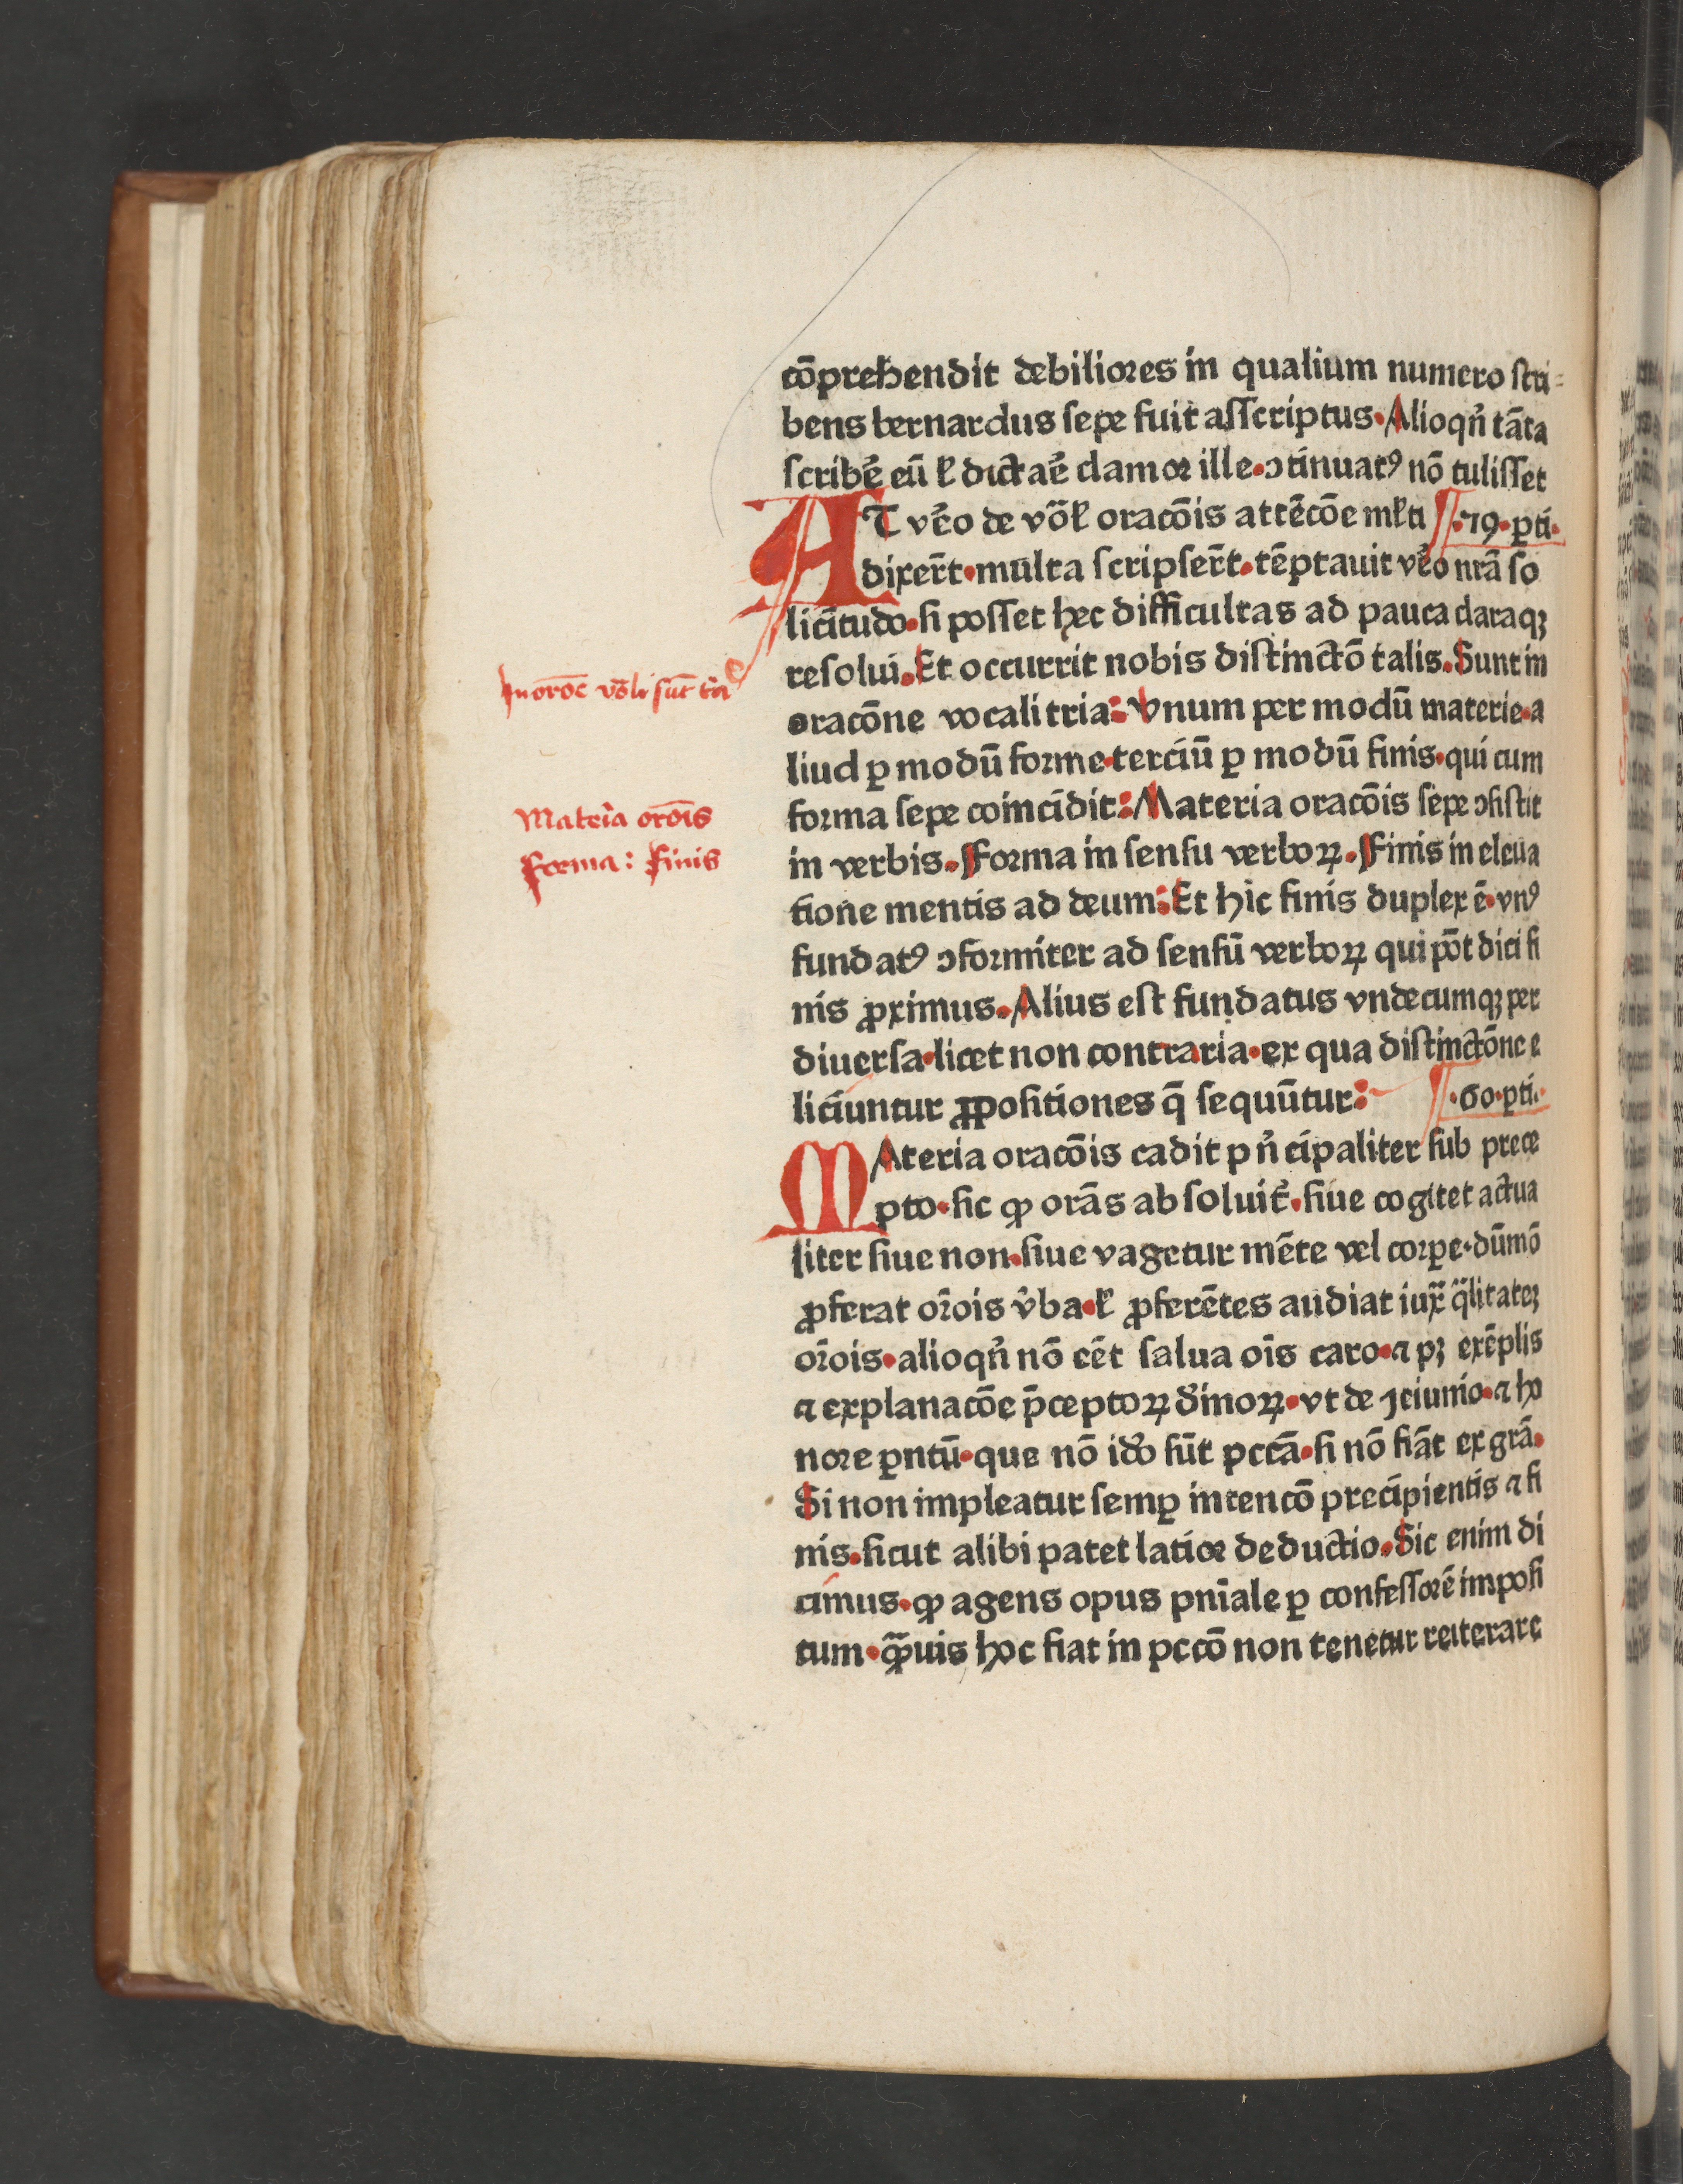 cōprehendit debiliores in qualium numero scri=
bens bernardus sepe fuit asscriptus. Alioqn̄ tāta
scribē eū ł dictaē clamor ille. ↄtinuatꝰ nō tulisset
AT vēo de vōł oracōis attēcōe młti ¶ .79. ꝑti.
dixert̄. multa scripsert̄. tēptauit vēo nrā so
licitudo. si posset hec difficultas ad pauca claraqꝫ
resolui. Et occurrit nobis distinctō talis. Sunt in
In orōe vōli sūt tria
oracōne vocali tria: Vnum per modū materie. a
liud ꝑ modū forme. terciū ꝑ modū finis. qui cum
Materia orōis
forma sepe coincidit: Materia oracōis sepe ↄsistit
forma: finis
in verbis. Forma in sensu verboꝝ. Finis in eleua
tione mentis ad deum: Et hic finis duplex ē. vnꝰ
fundatꝰ ↄformiter ad sensū verboꝝ qui pōt dici fi
nis ꝓximus. Alius est fundatus vndecumqꝫ per
diuersa. licet non contraria. ex qua distinctōne e
liciuntur ꝓpositiones q̄ sequūtur: ¶ .60. ꝑti.
MAteria oracōis cadit pn̄cipaliter sub prece
pto. sic ꝙ orās absoluit᷑. siue cogitet actua
liter siue non. siue vagetur mēte vel corꝑe. dūmō
ꝓferat or̄ois v̄ba. ł ꝓferētes audiat iux̄ q̄litatēꝫ
or̄ois. alioqn̄ nō eēt salua oīs caro. ⁊ pꝫ exēplis
⁊ explanacōe p̄ceptoꝝ dīnoꝝ. vt de ieiunio. ⁊ ho
nore ꝑntū. que nō idō sūt pccā. si nō fiāt ex grā.
Si non impleatur semꝑ intencō precipientis ⁊ fi
nis. sicut alibi patet latior deductio. Sic enim di
cimus. ꝙ agens opus pnīale ꝑ confessorē imposi
tum. ꝙ̄uis hoc fiat in pccō non tenetur reiterare